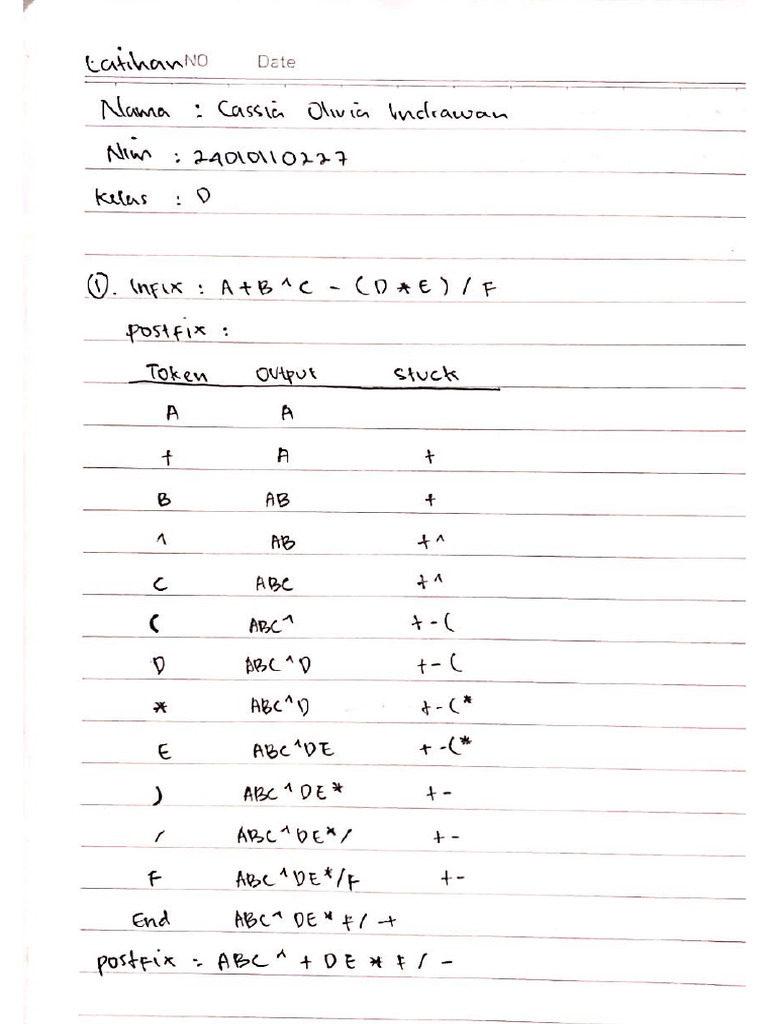 Latihan NO Date
Nama : Cassia Olivia Indrawan
Nim : 24010110227
Kelas : D
①. Infix : A + B ^ C - ( D * E ) / F
postfix :
Token Output Stuck
A A
+ A +
B AB +
^ AB + ^
C ABC + ^
( ABC^ + - (
D ABC^D + - (
* ABC^D + - ( *
E ABC^DE + - ( *
) ABC^DE* + -
/ ABC^DE*/ + -
F ABC^DE*/F + -
End ABC^DE*F/-+
postfix = ABC^ + DE * F / -